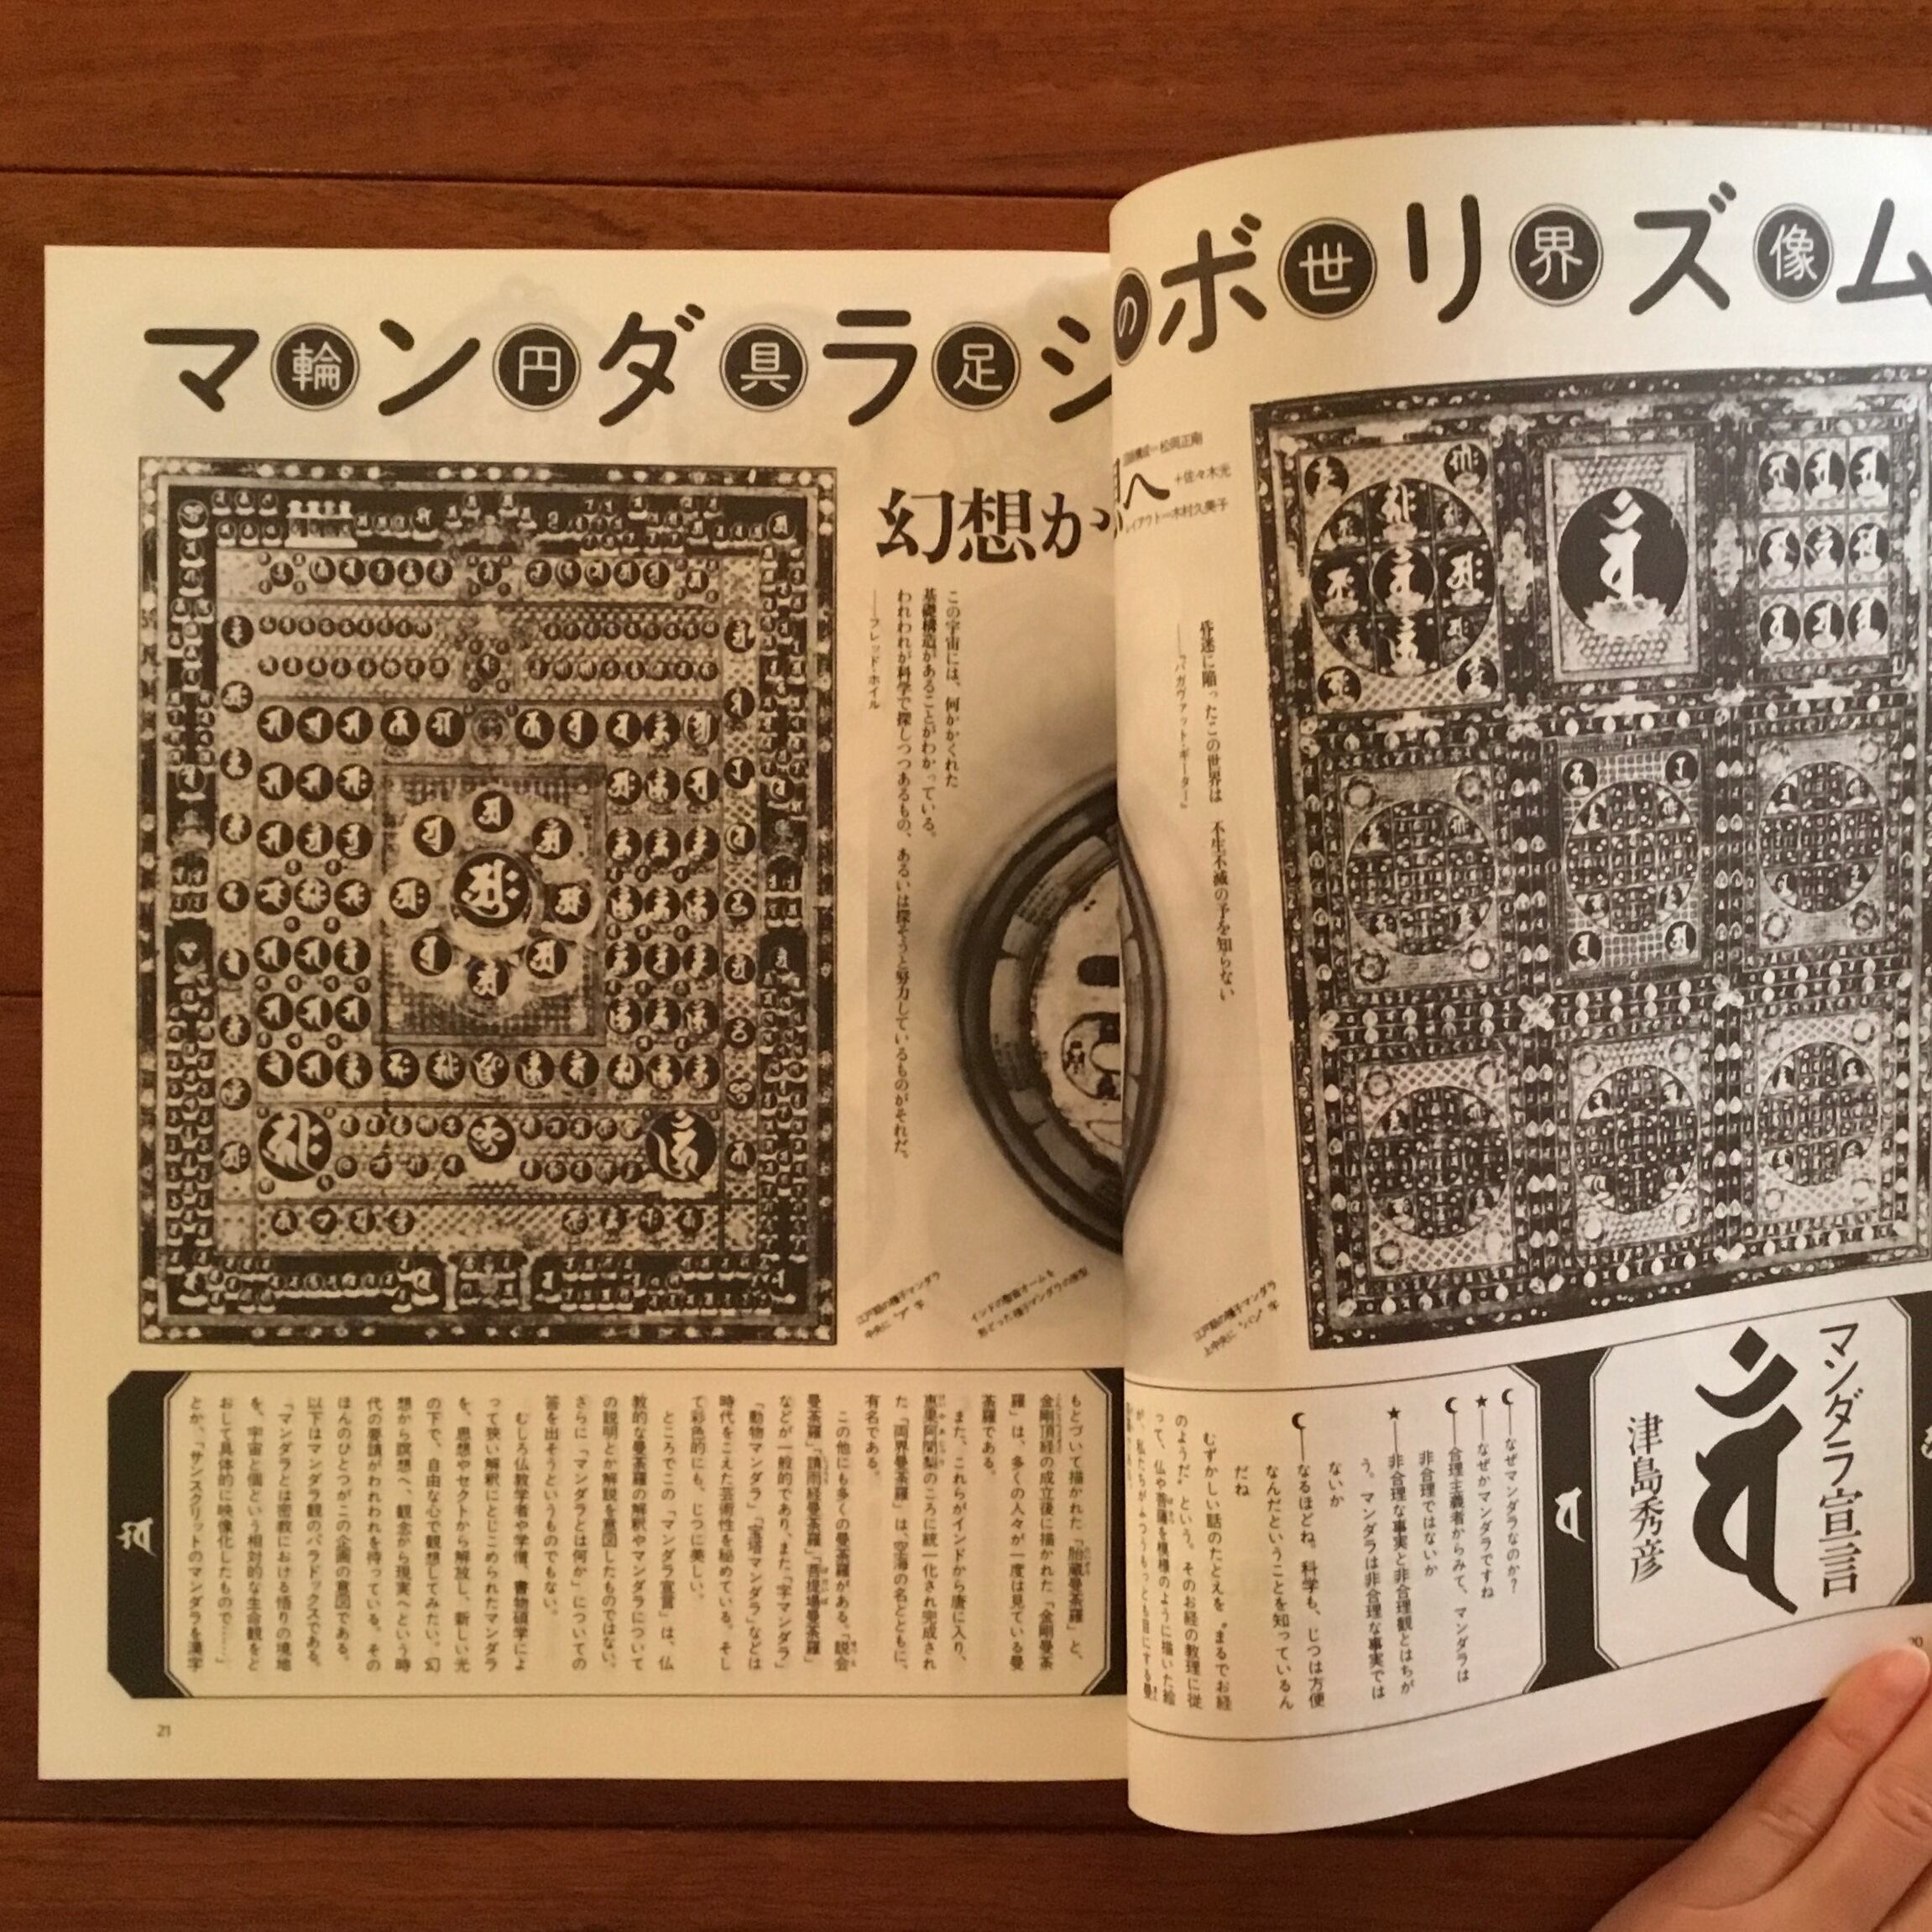 マ輪ン円ダ具ラ足シ
のボ世リ界ズ像ム
幻想か
へ
松岡正剛
+佐々木光
レイアウト=木村久美子
この宇宙には、何かかくれた
基礎構造があることがわかっている。
われわれが科学で探しつつあるもの、あるいは探そうと努力しているものがそれだ。
——フレッド・ホイル
昏迷に陥ったこの世界は 不生不滅の予を知らない
——『バガヴァット・ギーター』
江戸期の種子マンダラ
中央に"ア"字
インドの聖音オームを
形どった種子マンダラの原型
江戸期の種子マンダラ
上中央に"バン"字
マンダラ宣言
津島秀彦
なぜマンダラなのか?
★——なぜかマンダラですね
合理主義者からみて、マンダラは
非合理ではないか
★——非合理な事実と非合理観とはちが
う。マンダラは非合理な事実では
ないか
なるほどね。科学も、じつは方便
なんだということを知っているん
だね
むずかしい話のたとえを、"まるでお経
のようだ"という。そのお経の教理に従
って、仏や菩薩を模様のように描いた絵
もとづいて描かれた「胎蔵曼荼羅」と、
金剛頂経の成立後に描かれた「金剛曼荼
羅」は、多くの人々が一度は見ている曼
荼羅である。
また、これらがインドから唐に入り、
恵果阿闍梨のころに統一化され完成され
た「両界曼荼羅」は、空海の名とともに、
有名である。
この他にも多くの曼荼羅がある。「説会
曼荼羅」「請雨経曼荼羅」「菩提場曼荼羅」
などが一般的であり、また「字マンダラ」
「動物マンダラ」「宝塔マンダラ」などは
時代をこえた芸術性を秘めている。そし
て彩色的にも、じつに美しい。
ところでこの「マンダラ宣言」は、仏
教的な曼荼羅の解釈やマンダラについて
の説明とか解説を意図したものではない。
さらに「マンダラとは何か」についての
答を出そうというものでもない。
むしろ仏教学者や学僧、書物碩学によ
って狭い解釈にとじこめられたマンダラ
を、思想やセクトから解放し、新しい光
の下で、自由な心で観想してみたい。幻
想から瞑想へ、観念から現実へという時
代の要請がわれわれを待っている。その
ほんのひとつがこの企画の意図である。
以下はマンダラ観のパラドックスである。
「マンダラとは密教における悟りの境地
を、宇宙と個という相対的な生命観をと
おして具体的に映像化したもので……」
とか、「サンスクリットのマンダラを漢字
21